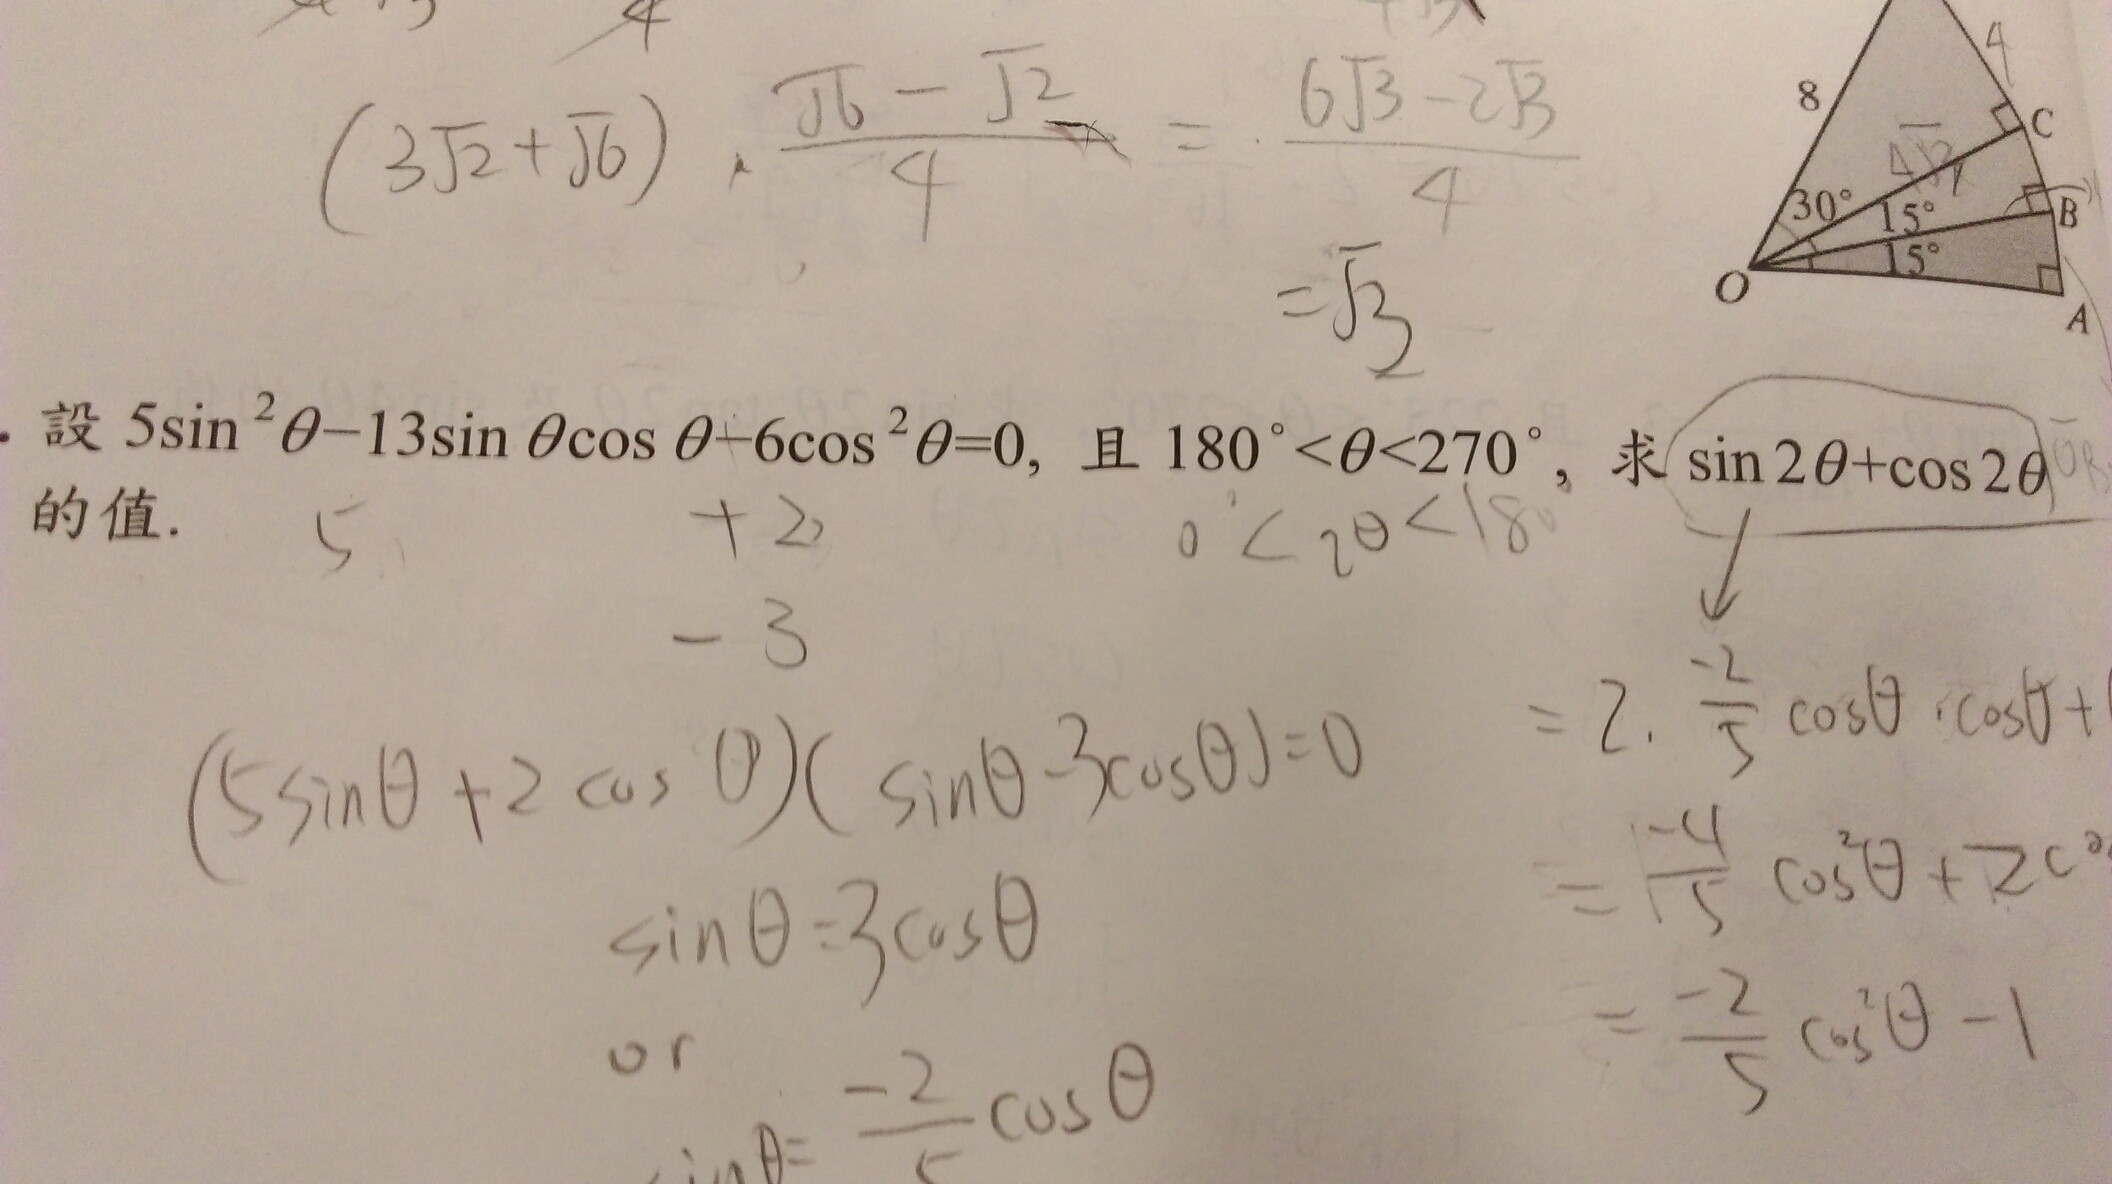 (3√2+√6) · (√6−√2)/4 = (6√3−2√3)/4
=√3
8
4
C
4√3
30°
15°
B
15°
O
A
設 5sin²θ−13sin θcos θ−6cos²θ=0, 且 180°<θ<270°, 求 sin2θ+cos2θ
的值.
5 +2 0°<2θ<180
−3
(5sinθ+2cosθ)(sinθ−3cosθ)=0
sinθ=3cosθ
or
sinθ= −2/5 cosθ
=2· −2/5 cosθ·cosθ+
= −4/5 cos²θ+2co
= −2/5 cos²θ−1